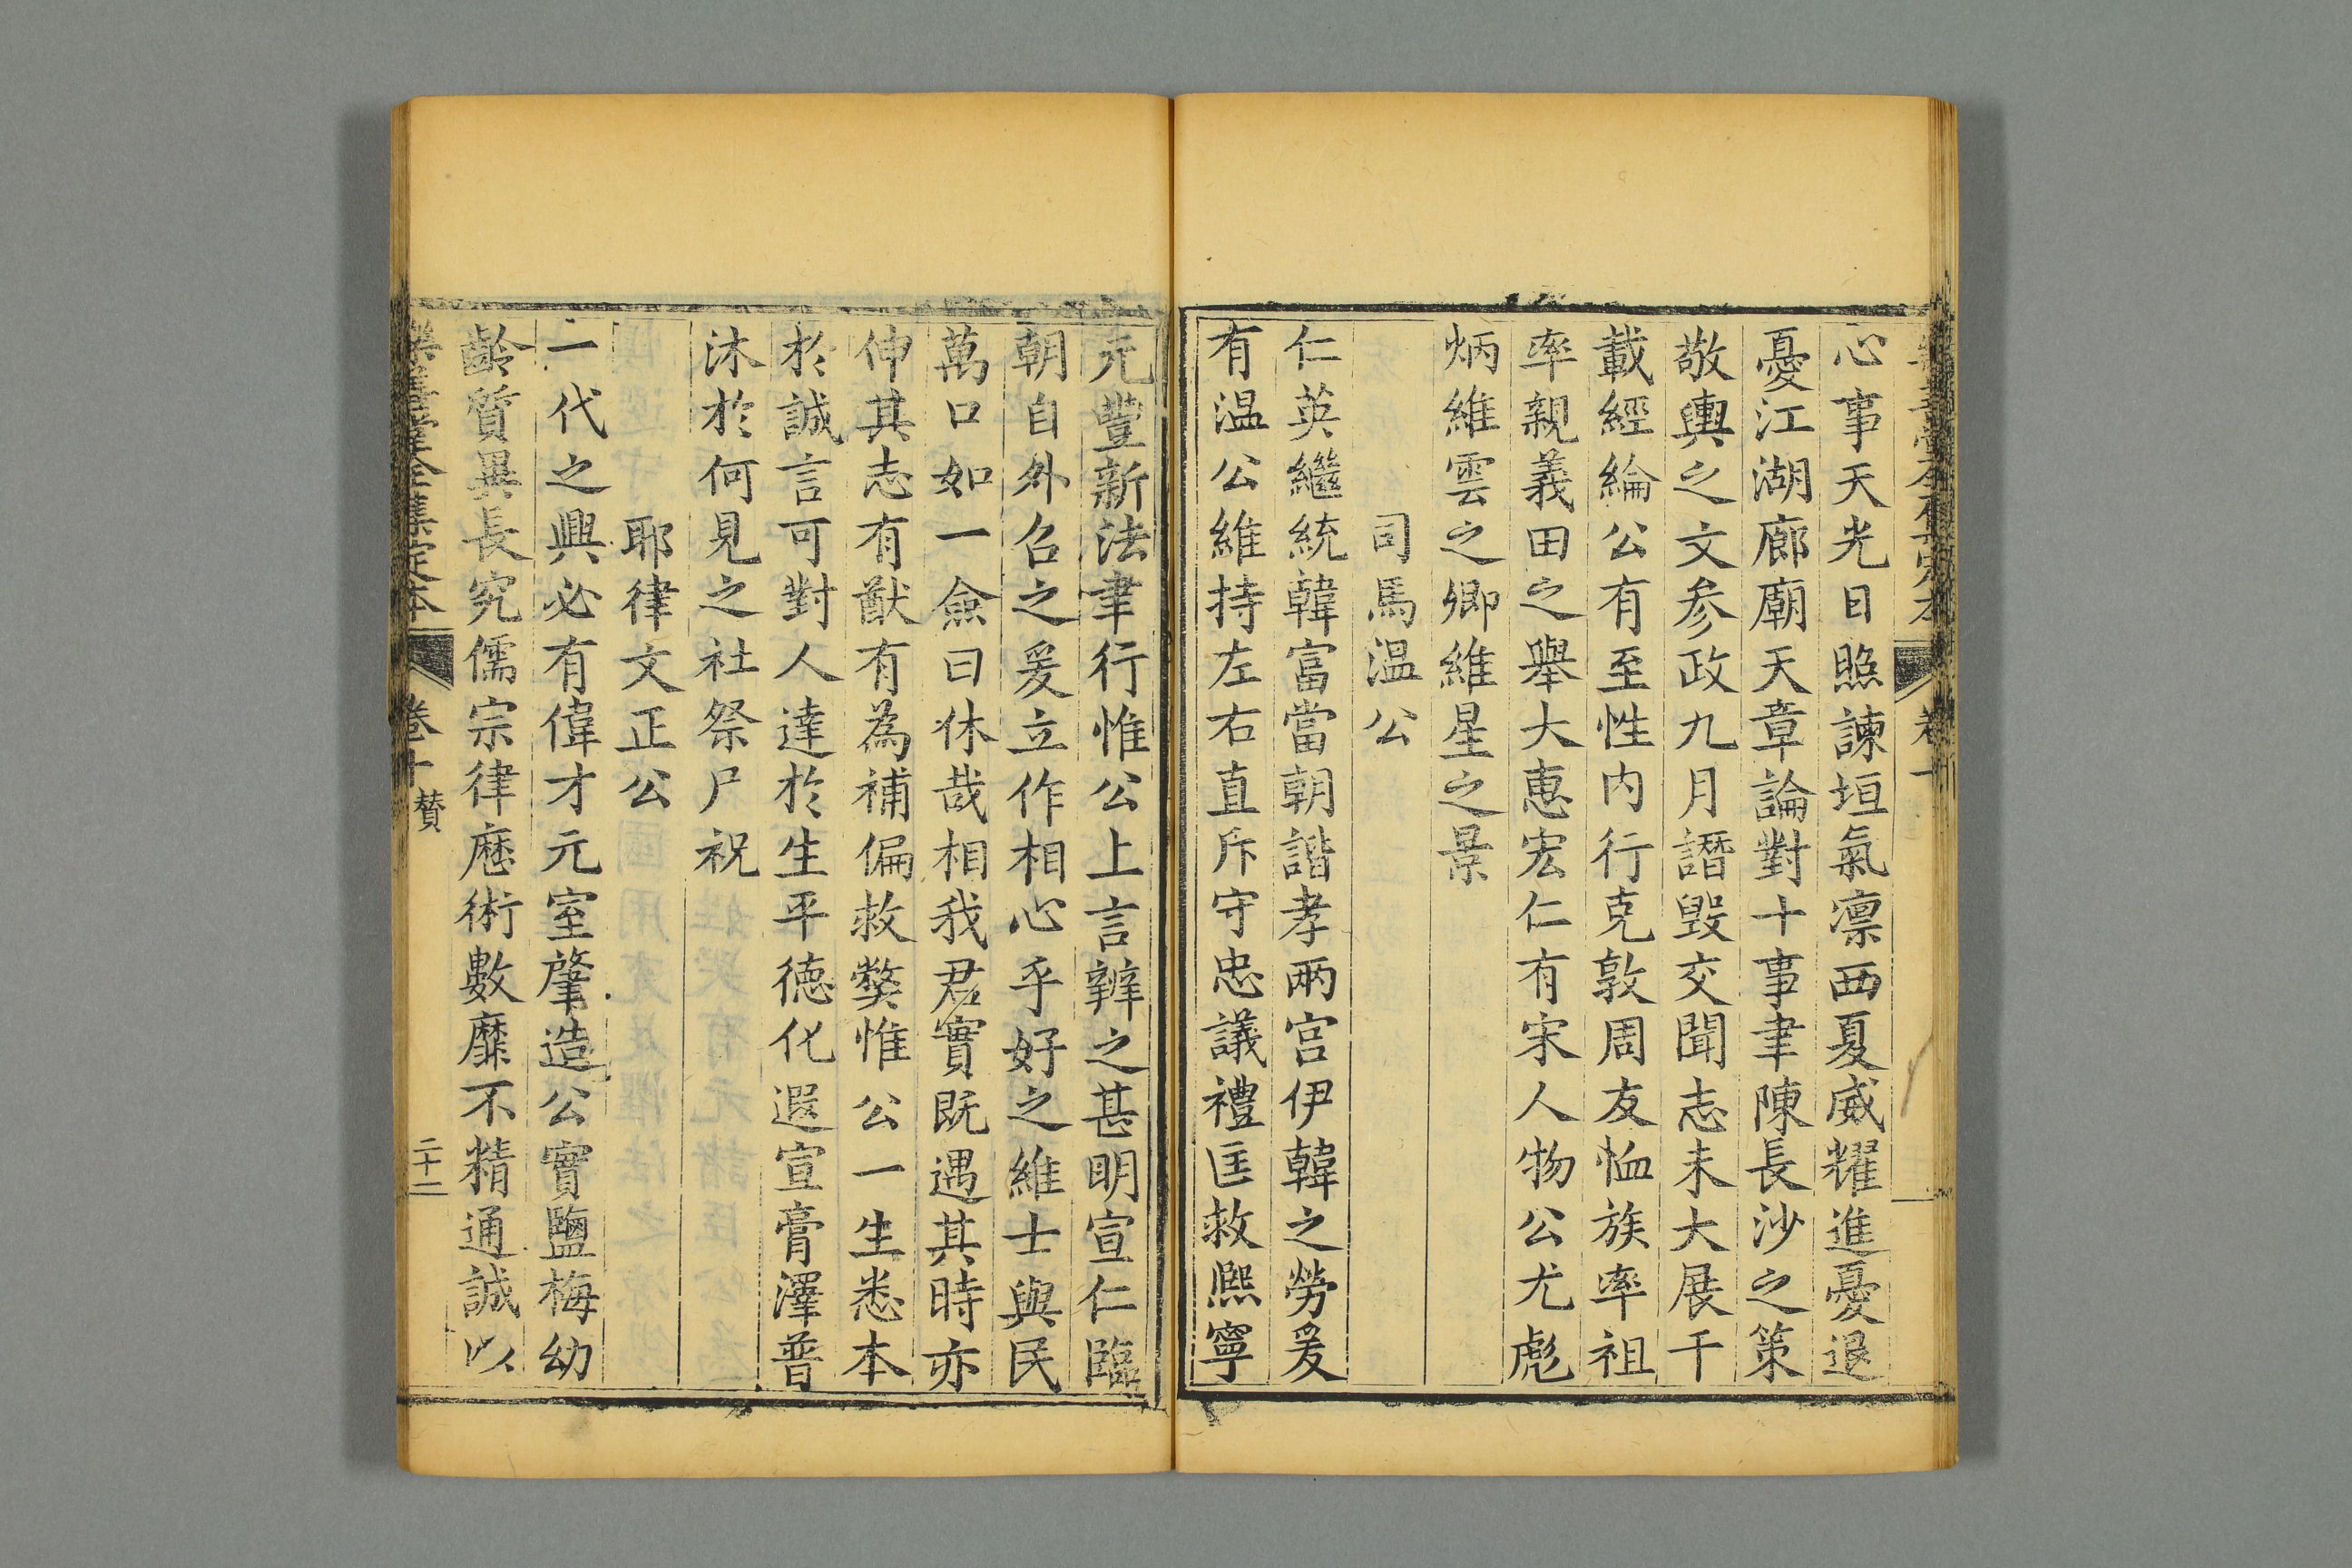 心事天光日照諫垣氣凛西夏威耀進憂退
憂江湖廊廟天章論對十事聿陳長沙之策
敬輿之文参政九月譖毀交聞志未大展千
載經綸公有至性内行克敦周友恤族率祖
率親義田之舉大惠宏仁有宋人物公尤彪
炳維雲之卿維星之景
司馬温公
仁英繼統韓富當朝諧孝兩宫伊韓之勞爰
有温公維持左右直斥守忠議禮匡救熈寧
元豐新法聿行惟公上言辨之甚明宣仁臨
朝自外召之爰立作相心乎好之維士與民
萬口如一僉曰休哉相我君實既遇其時亦
伸其志有猷有為補偏救獘惟公一生悉本
於誠言可對人達於生平徳化遐宣膏澤普
沐於何見之社祭尸祝
耶律文正公
一代之興必有偉才元室肇造公實鹽梅幼
齡質異長究儒宗律厯術數靡不精通誠以
樂善堂全集定本 卷十 贊 二十二